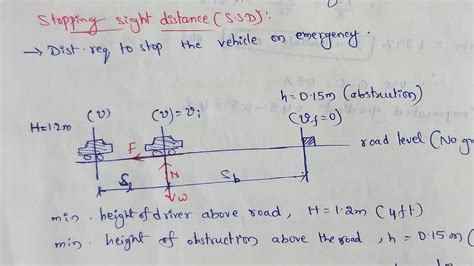 Stopping sight distance (S.S.D) :
→ Dist. req to stop the vehicle on emergency.
h = 0.15m (abstruction)
(v) (v) = vi (vf = 0)
H = 1.2m
F
road level (No gr
N
Sl Sb
W
min. height of driver above road, H = 1.2m (4ft)
min. height of obstruction above the road, h = 0.15m